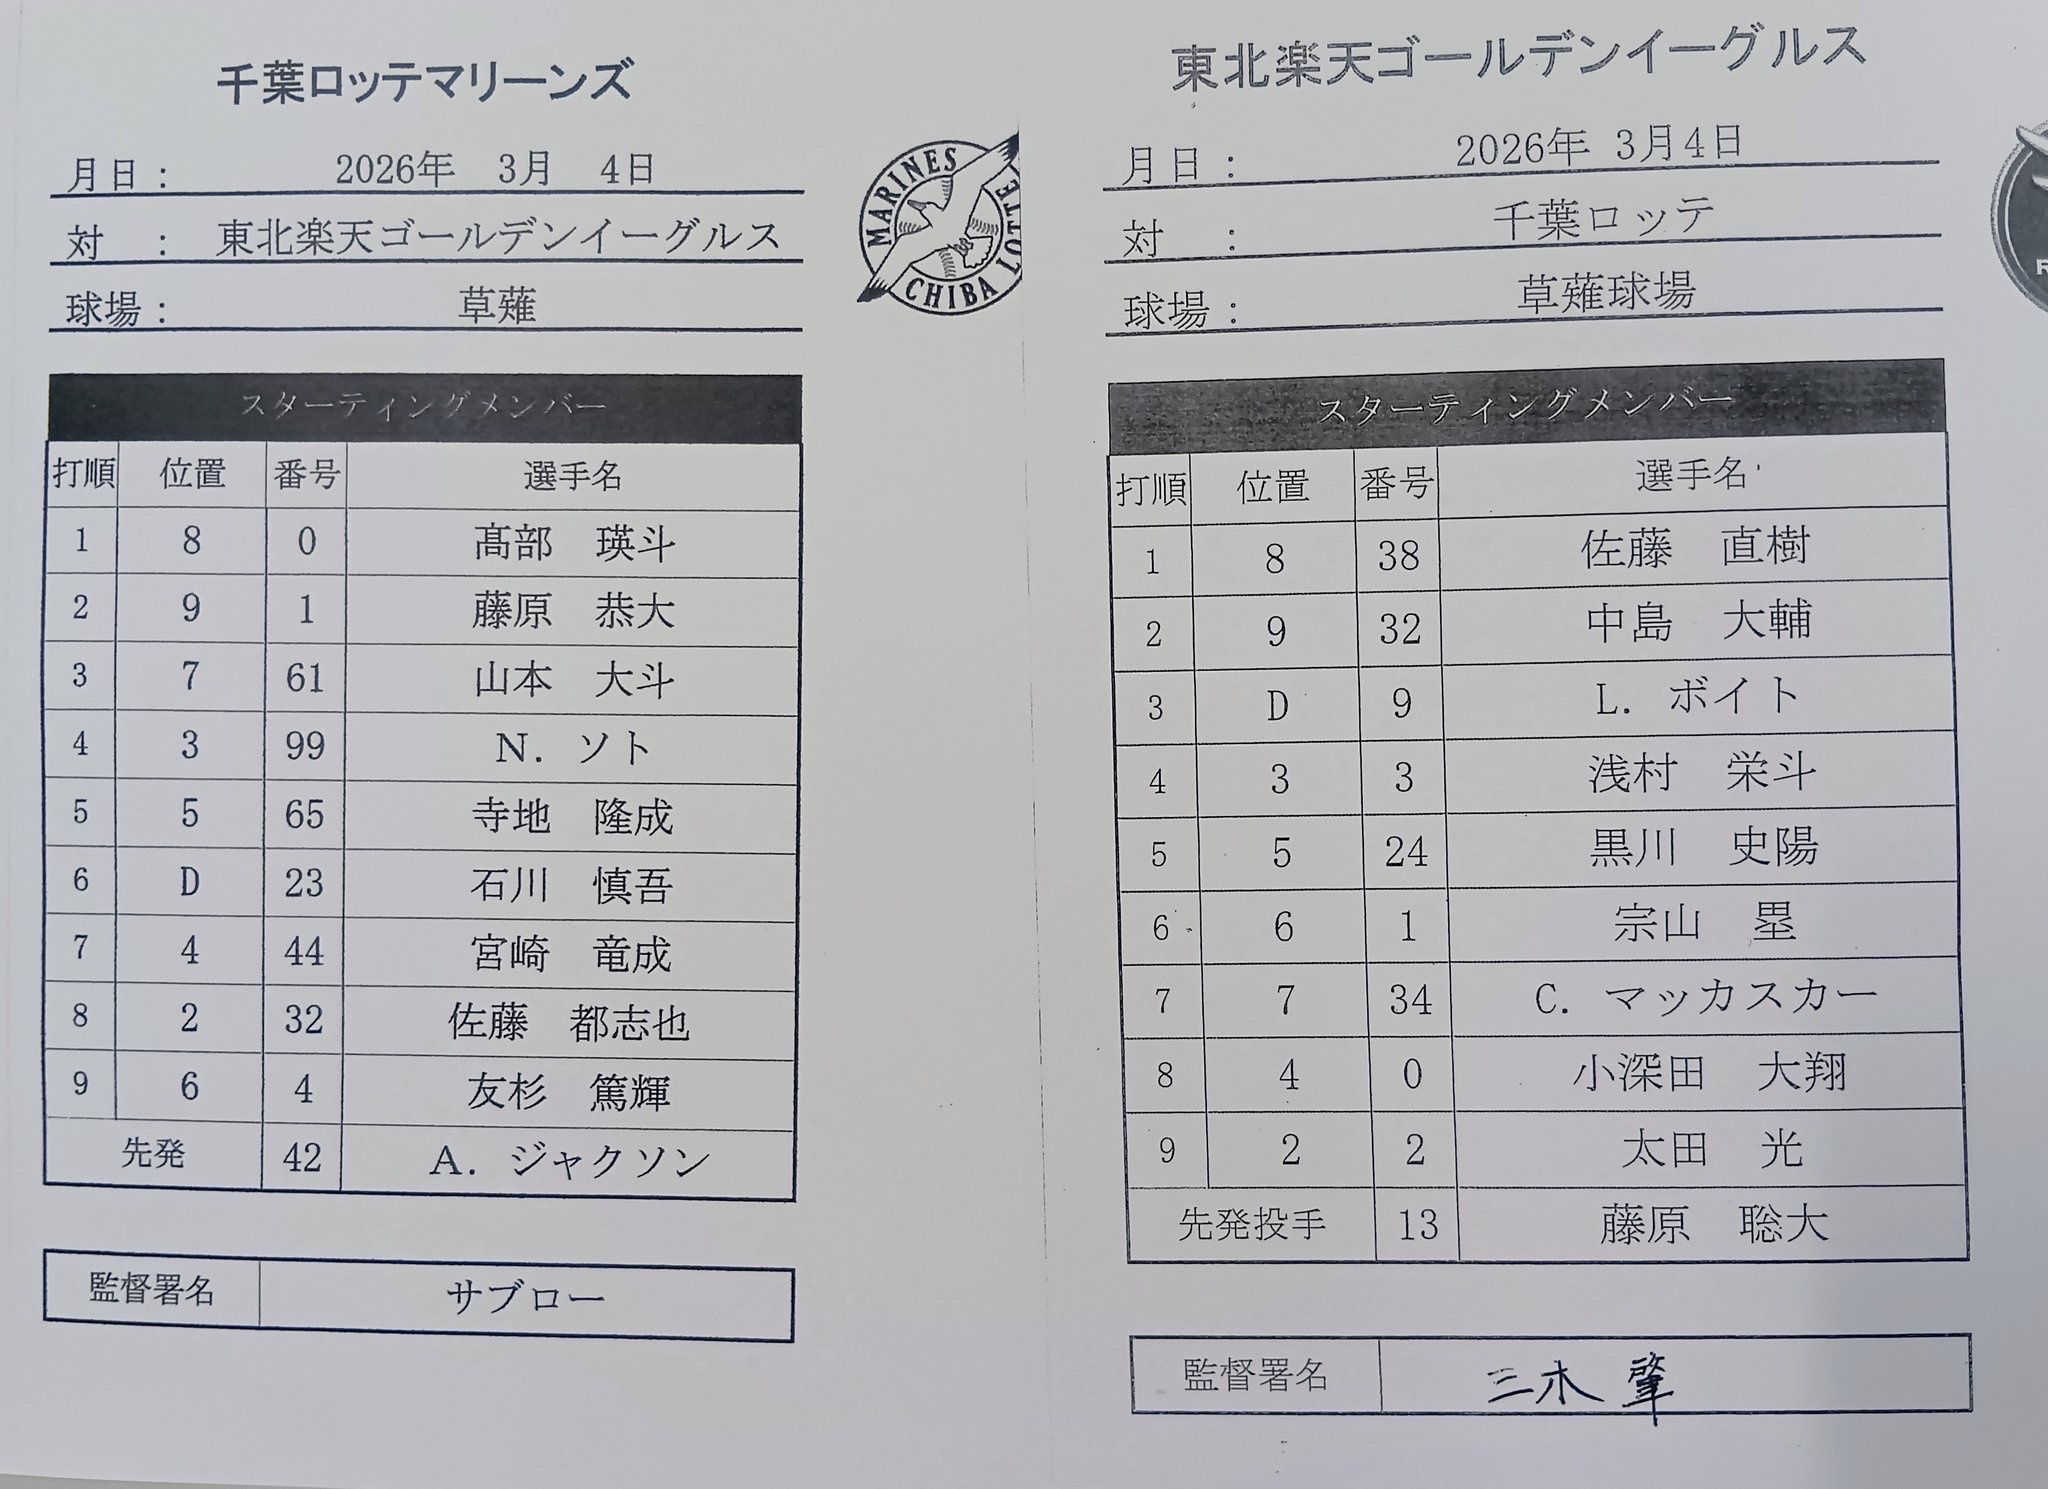 千葉ロッテマリーンズ
月日： 2026年 3月 4日
対 ： 東北楽天ゴールデンイーグルス
球場： 草薙
MARINES
CHIBA LOTTE
スターティングメンバー
打順 位置 番号 選手名
1 8 0 髙部 瑛斗
2 9 1 藤原 恭大
3 7 61 山本 大斗
4 3 99 N. ソト
5 5 65 寺地 隆成
6 D 23 石川 慎吾
7 4 44 宮崎 竜成
8 2 32 佐藤 都志也
9 6 4 友杉 篤輝
先発 42 A. ジャクソン
監督署名 サブロー
東北楽天ゴールデンイーグルス
月日： 2026年 3月4日
対 ： 千葉ロッテ
球場： 草薙球場
R
スターティングメンバー
打順 位置 番号 選手名
1 8 38 佐藤 直樹
2 9 32 中島 大輔
3 D 9 L. ボイト
4 3 3 浅村 栄斗
5 5 24 黒川 史陽
6 6 1 宗山 塁
7 7 34 C. マッカスカー
8 4 0 小深田 大翔
9 2 2 太田 光
先発投手 13 藤原 聡大
監督署名 三木 肇